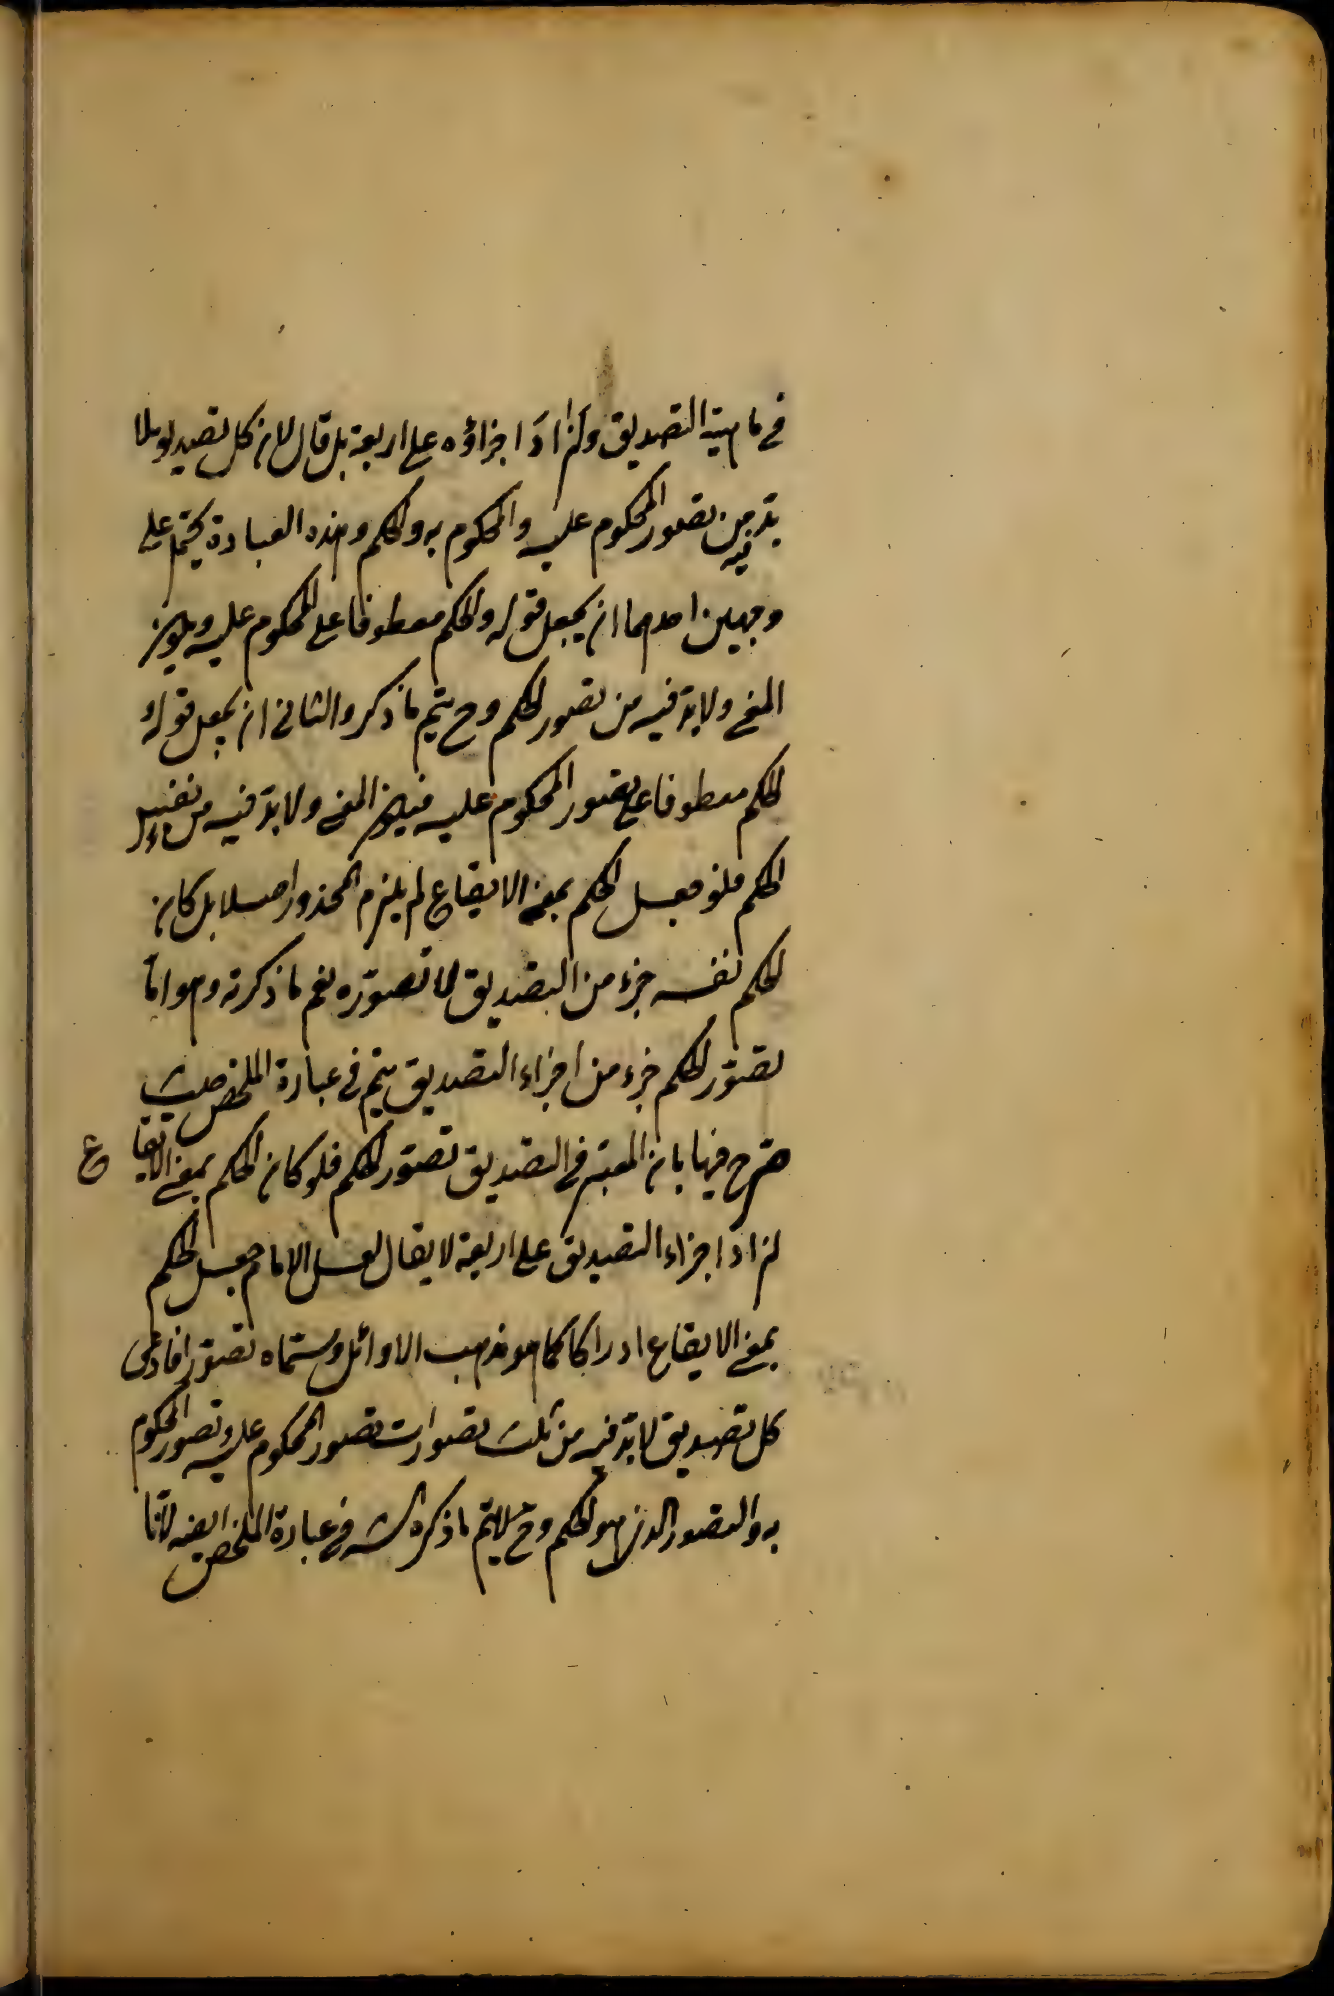 في ماهية التصديق ولزاد اجزاؤه على اربعة بل قال لان كل تصديق فلا
بد فيه من تصور المحكوم عليه والمحكوم به والحكم وهذه العبادة يحتمل على
وجهين احدهما ان يجعل قوله والحكم معطوفا على المحكوم عليه ويكون
المعنى ولابد فيه من تصور الحكم وح يتم ما ذكر والثاني ان يجعل قوله و
الحكم معطوفا على تصور المحكوم عليه فيكون المعنى ولا بد فيه من نفس
الحكم فلو جعل الحكم بمعنى الايقاع لم يلزم المحذور اصلا بل كان
الحكم نفسه جزء من التصديق لا تصوره نعم ما ذكرته وهو انا
تصور الحكم جزء من اجزاء التصديق يتم في عبارة الملخص حيث
صرح فيها بان المعتبر في التصديق تصور الحكم فلو كان الحكم بمعنى الايقاع
لزاد اجزاء التصديق على اربعة لا يقال لعل الامام جعل الحكم
بمعنى الايقاع ادراكا كما هو مذهب الاوائل وسماه تصورا فادعى
كل تصديق لا بد فيه من ثلث تصورات تصور المحكوم عليه وتصور المحكوم
به والتصور الذي هو الحكم وح لا يتم ما ذكره الش في عبارة الملخص ايضا لانا